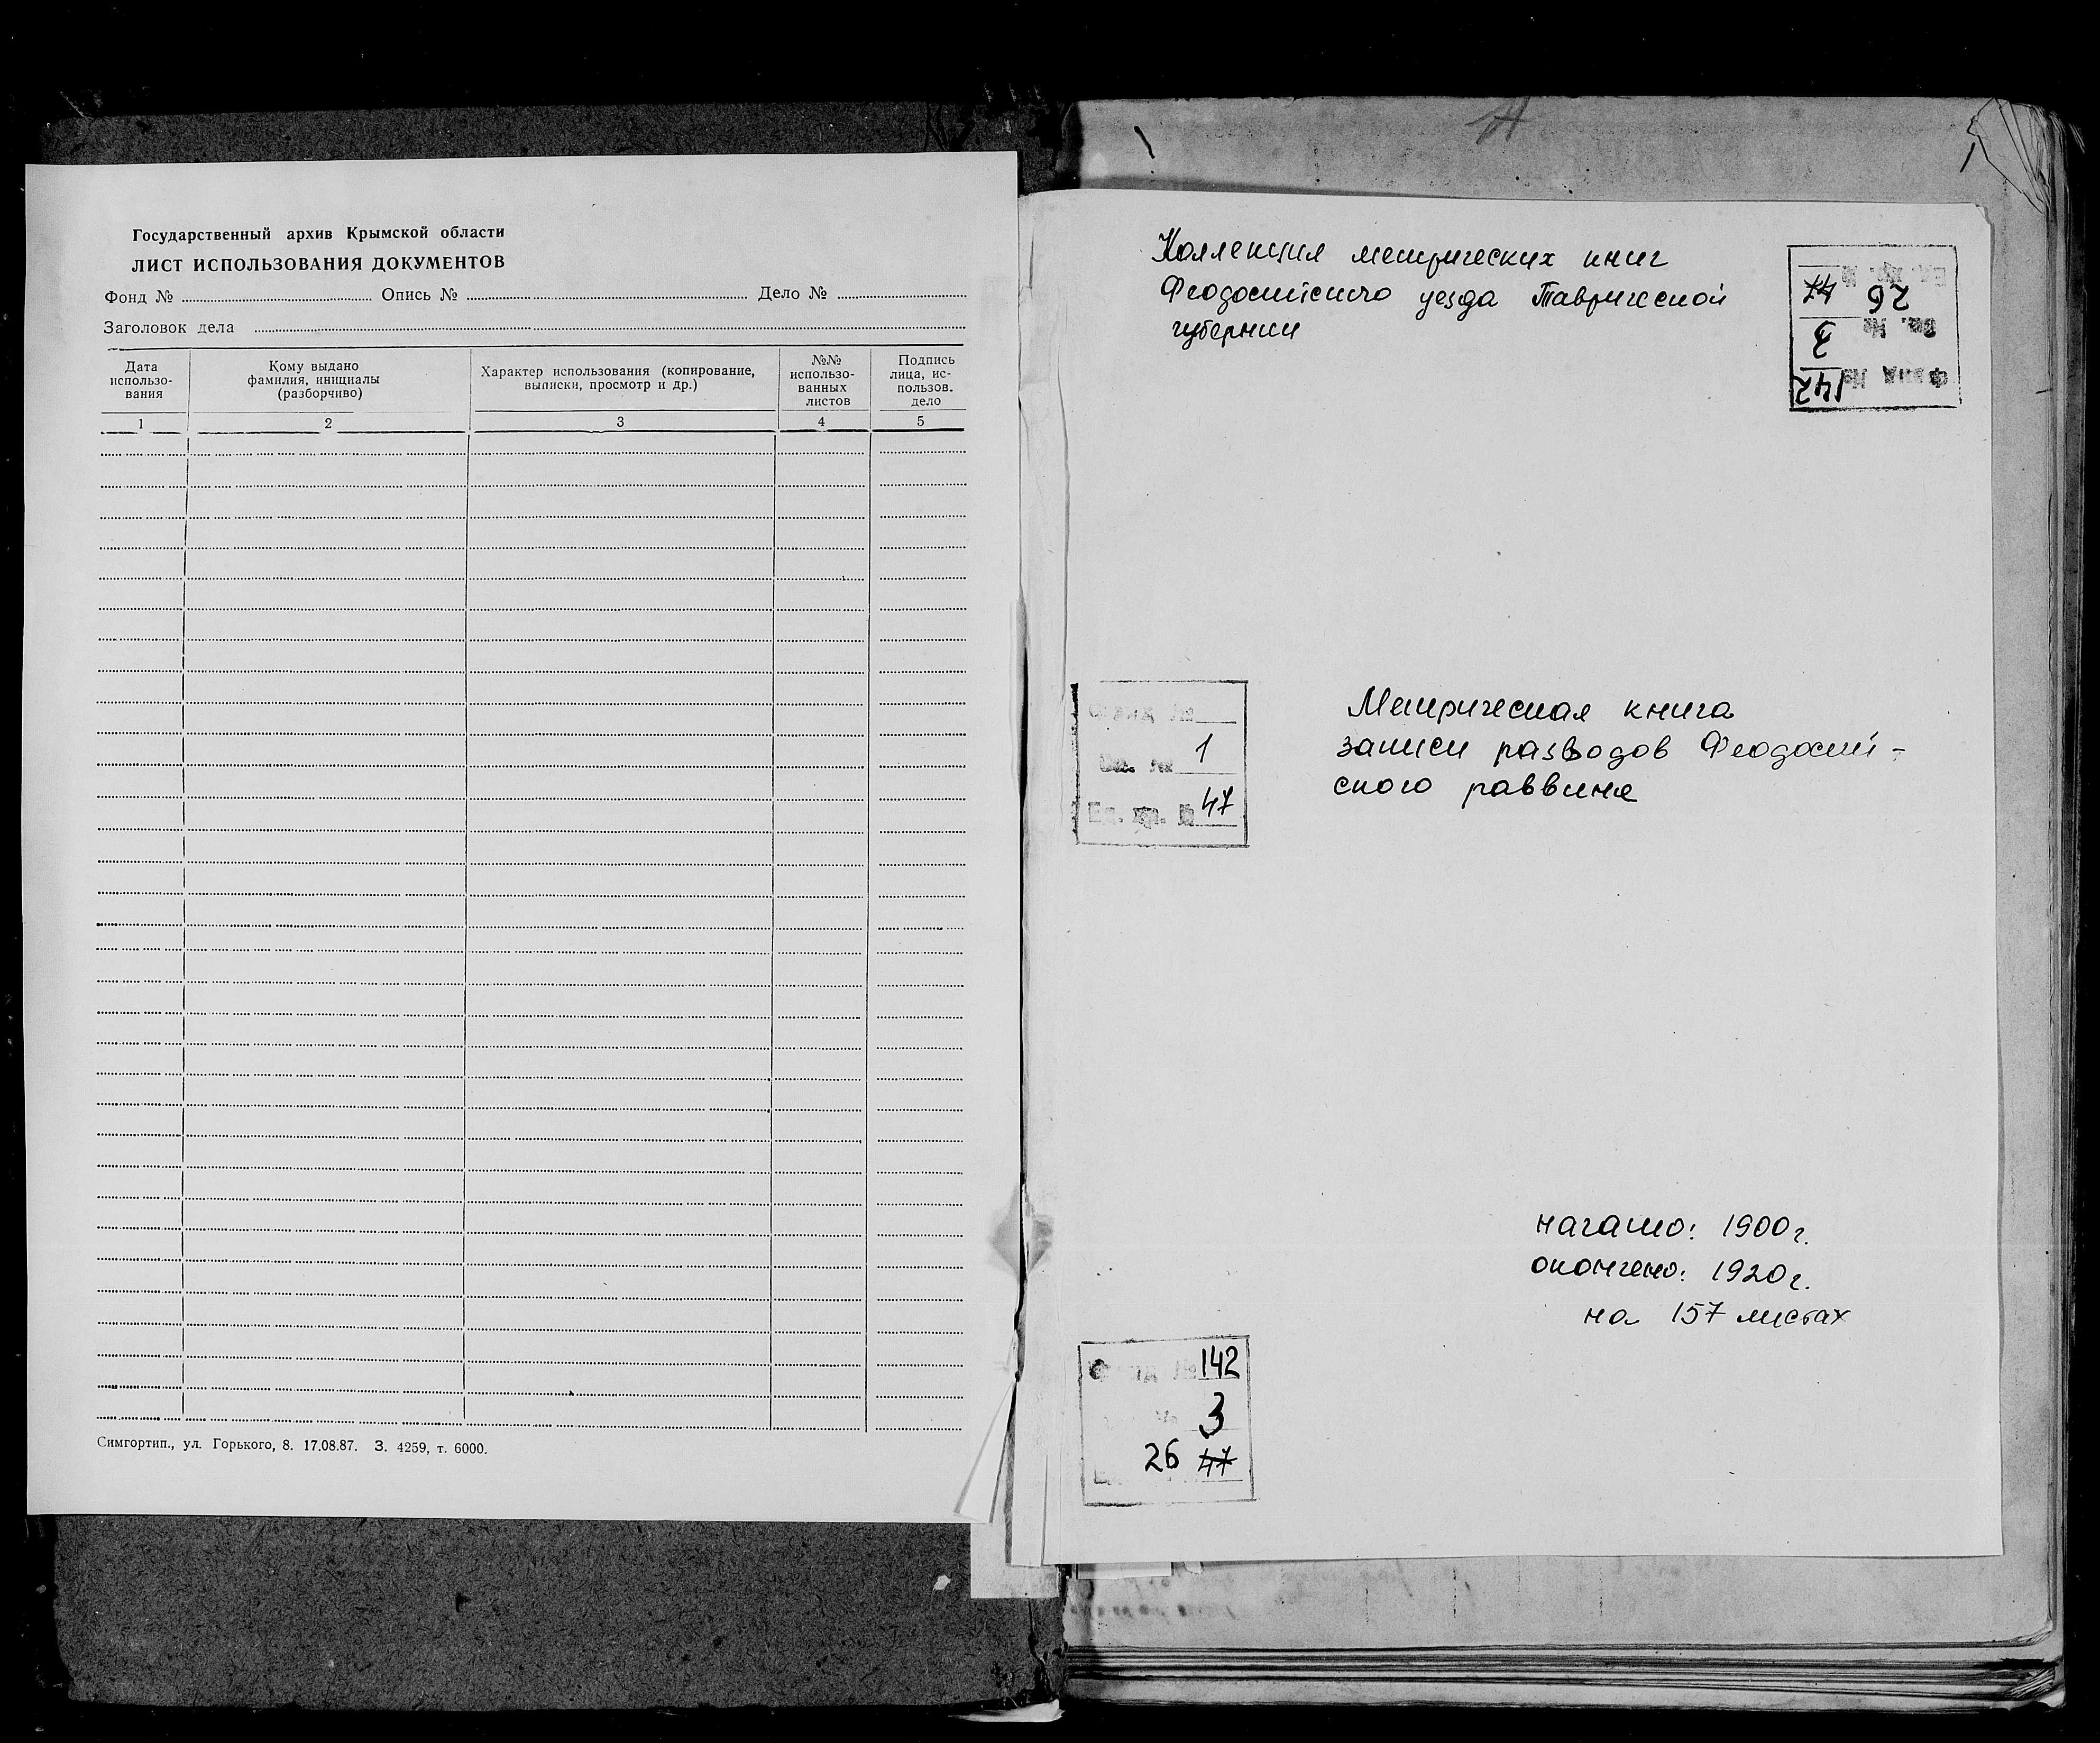 Государственный архив Крымской области
ЛИСТ ИСПОЛЬЗОВАНИЯ ДОКУМЕНТОВ
Фонд № Опись № Дело №
Заголовок дела
Дата использо-вания
Кому выдано фамилия, инициалы (разборчиво)
Характер использования (копирование, выписки, просмотр и др.)
№№ использо-ванных листов
Подпись лица, ис-пользов. дело
1 2 3 4 5
Симгортип., ул. Горького, 8. 17.08.87. З. 4259, т. 6000.
Коллекция метрических книг
Феодосийского уезда Таврической
губернии
Фонд № 142
Оп. № 3
Ед. хр. № 26 47
Метрическая книга
записи разводов Феодосий-
ского раввина
Фонд №
Оп. № 1
Ед. хр. № 47
начато: 1900г.
окончено: 1920г.
на 157 листах
Фонд № 142
№ 3
26 47